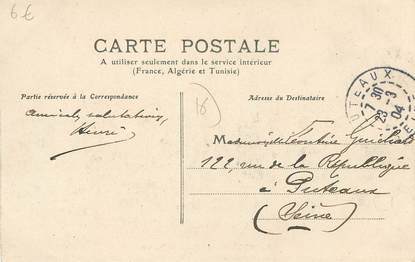 6€
CARTE POSTALE
A utiliser seulement dans le service intérieur
(France, Algérie et Tunisie)
Partie réservée à la Correspondance
Adresse du Destinataire
PUTEAUX
7 30
23 - 3
04
18
Amicales salutations,
Henri
Mademoiselle Léontine
122, rue de la République
à Puteaux
(Seine)